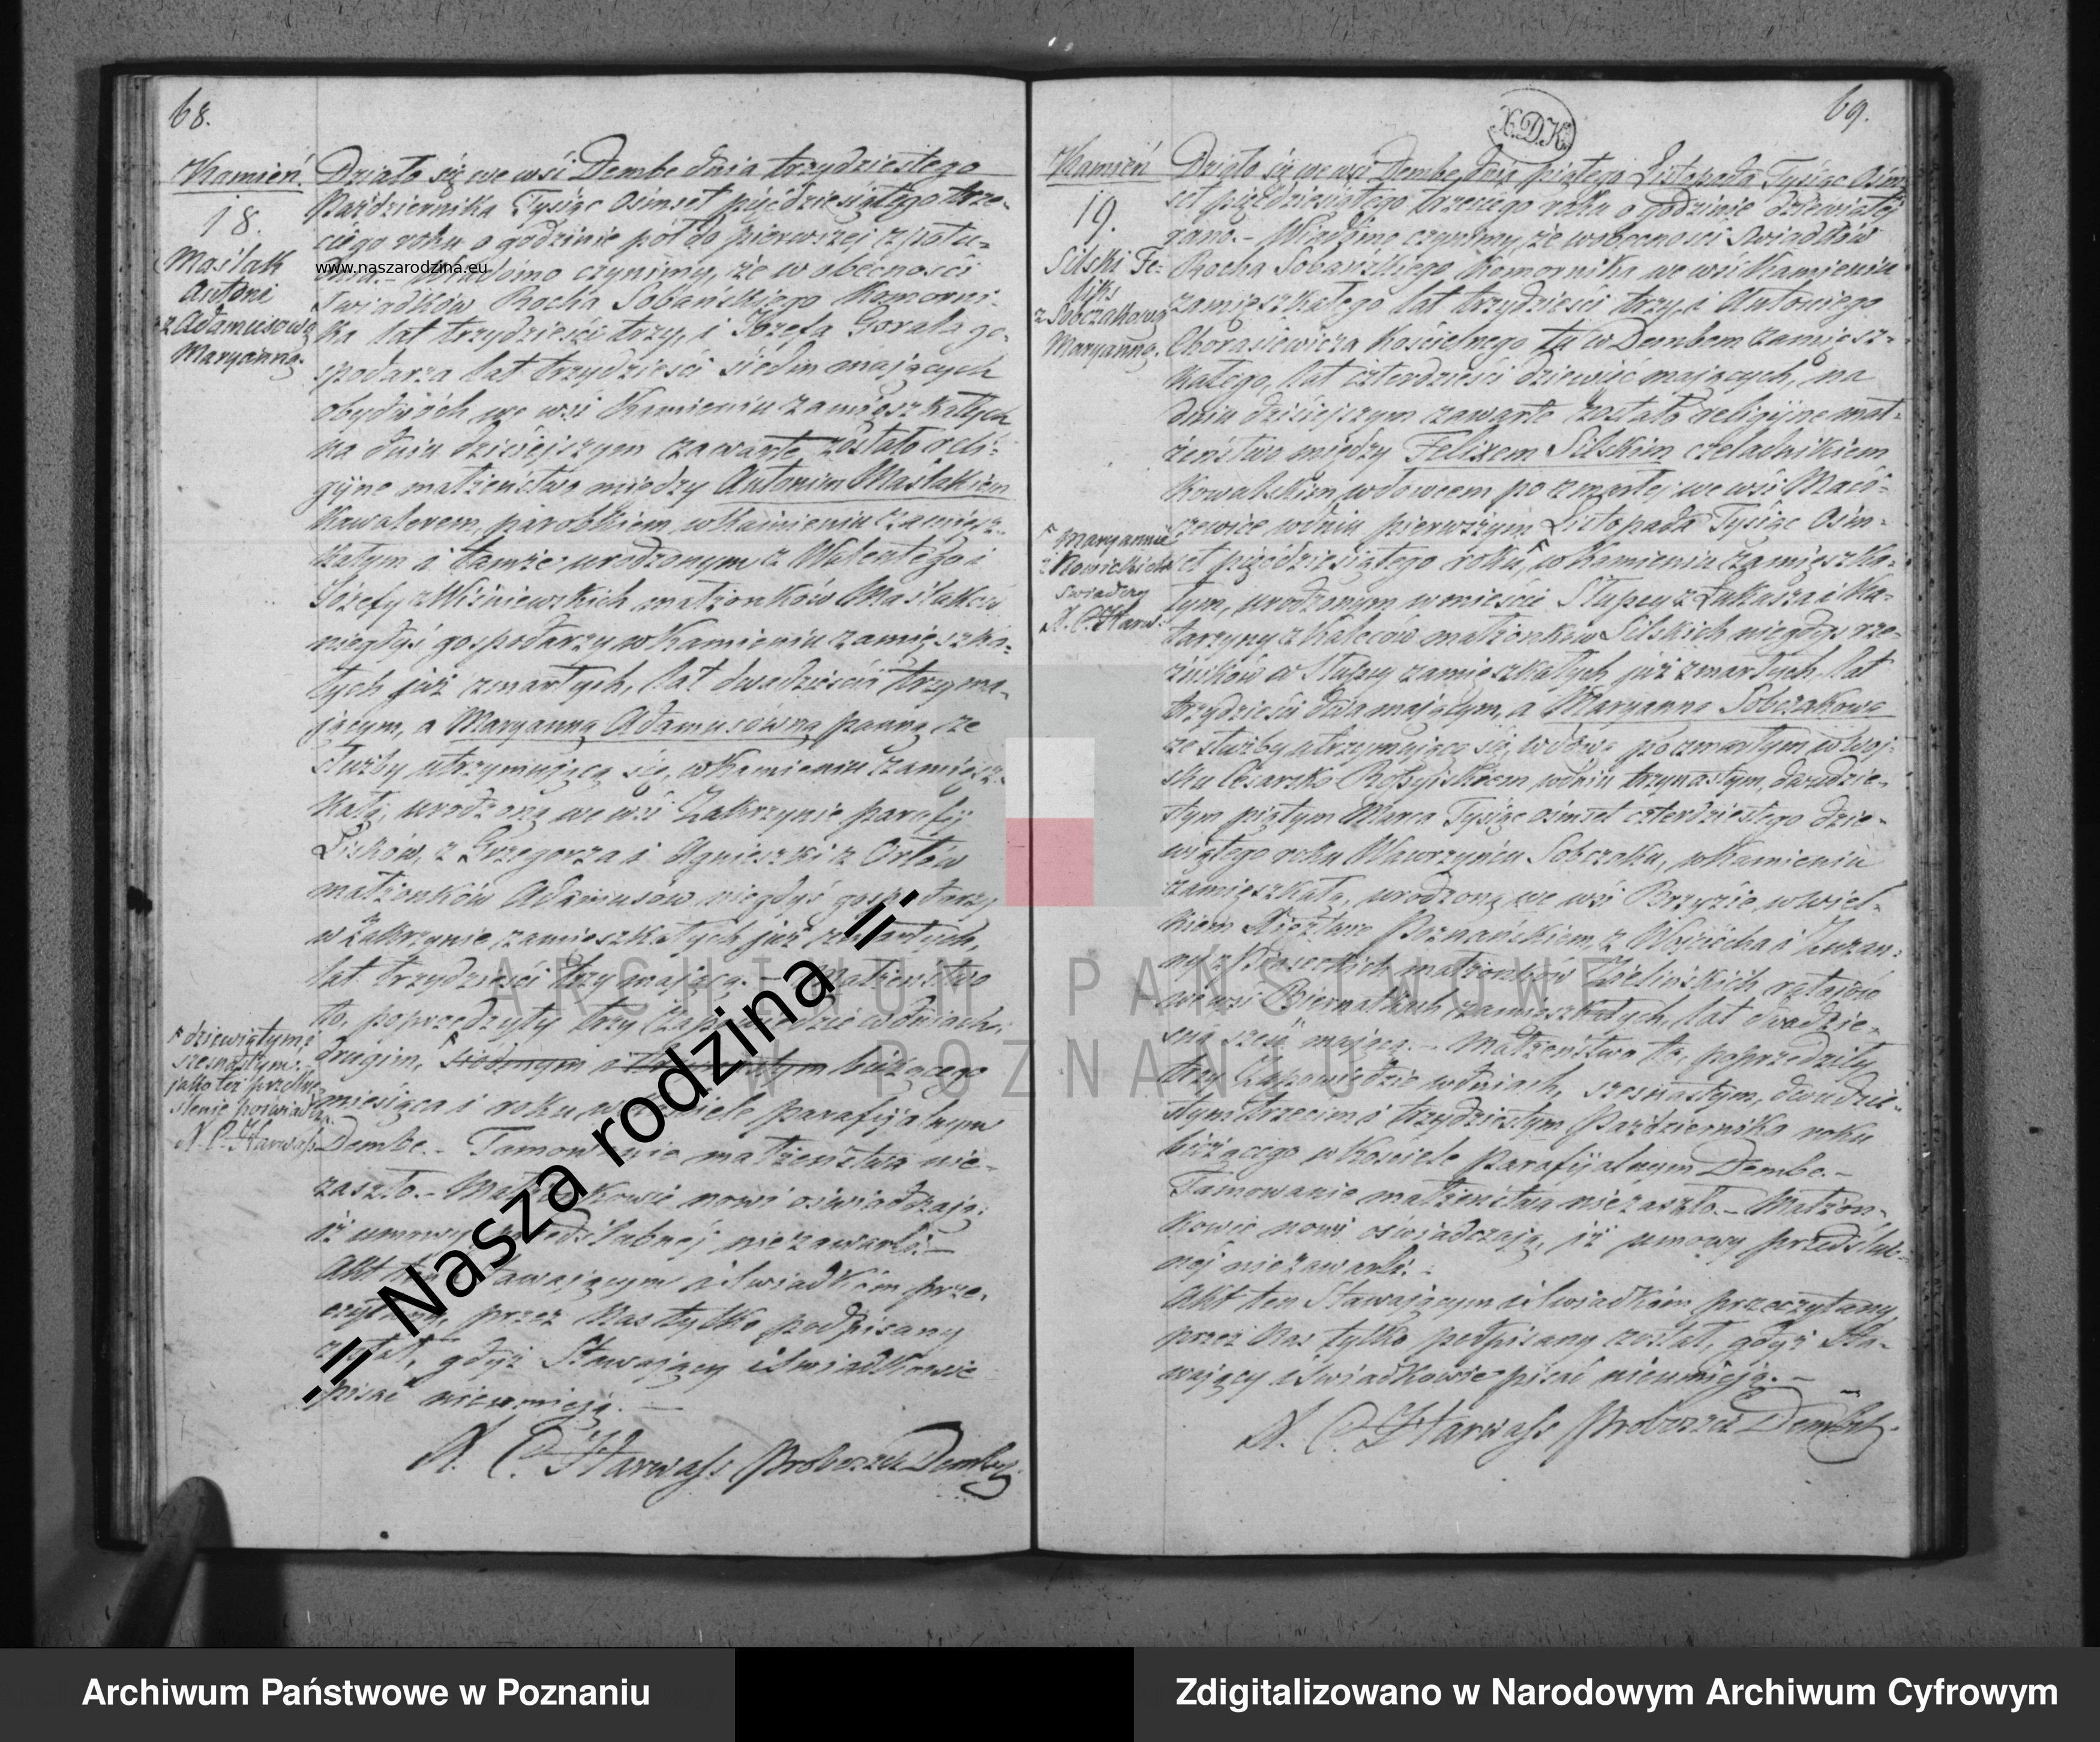 68.
Kamień.
18.
Maślak
Antoni
z Adamusową
Maryanną.
Działo się we wsi Dembe dnia trzydziestego
Października Tysiąc Ośmset pięćdziesiątego trze-
ciego roku o godzinie pół do pierwszej z połu-
dnia.- Wiadomo czynimy, że w obecności
Świadków Rocha Sobańskiego Komorni-
ka lat trzydzieści trzy, i Józefa Gorala go-
spodarza lat trzydzieści siedm mających
obydwóch we wsi Kamieniu zamięszkałych
na dniu dzisiejszym zawarte zostało reli-
gijne małżeństwo między Antonim Maślakiem
Kawalerem, parobkiem, w Kamieniu zamiesz-
kałym i tamże urodzonym z Walentego i
Józefy z Wiśniewskich małżonków Maślaków
niegdyś gospodarzy w Kamieniu zamięszka-
łych już zmarłych, lat dwadzieścia trzy ma-
jącym, a Maryanną Adamusówną panną ze
służby utrzymującą się, w Kamieniu zamięsz-
kałą, urodzoną we wsi Zakrzynie parafij
Lisków, z Grzegorza i Agnieszki z Orłów
małżonków Adamusów niegdyś gospodarzy
w Zakrzynie zamięszkałych już zmarłych,
lat trzydzieści trzy mającą.- Małżeństwo
to, poprzedziły trzy zapowiedzie w dniach:
drugim, siódmym i bieżącego
miesiąca i roku w Kościele parafijalnym
Dembe.- Tamowanie małżeństwa nie-
zaszło.- Małżonkowie nowi oświadczają:
iż umowy przedślubnéj niezawarli.-
Akt ten Stawającym i Świadkom prze-
czytany, przez Nas tylko podpisany
został, gdyż Stawający i Świadkowie
pisać nieumieją.-
dziewiątym i
szesnastym:
jako też przekre-
ślenie poświadcza
X. C. Harwas
X. C. Harwaſs Proboszcz Dembsk.
69.
X.D.K.
Kamień
19.
Silski Fe-
liks
z Sobczakową
Maryanną.
Działo się we wsi Dembe dnia piątego Listopada Tysiąc Ośm-
set pięćdziesiątego trzeciego roku o godzinie dziewiątej
rano.- Wiadomo czynimy, że w obecności Świadków
Rocha Sobańskiego Komornika we wsi Kamieniu
zamięszkałego lat trzydzieści trzy, i Antoniego
Kościelnego tu w Dembem zamięsz-
kałego, lat czterdzieści dziewięć mających, na
dniu dzisiejszym zawarte zostało religijne mał-
żeństwo między Felixem Silskim czeladnikiem
Kowalskim, wdowcem po zmarłej we wsi Macie-
czewice w dniu pierwszym Listopada Tysiąc Ośm-
set pięćdziesiątego roku, w Kamieniu zamięszka-
łym, urodzonym w mieście Słupcy z Łukasza i Ka-
tarzyny z małżonków Silskich niegdyś rze-
źników w Słupcy zamięszkałych już zmarłych lat
trzydzieści dwa mającym, a Maryanną Sobczakową
ze służby utrzymującą się, wdową po zmarłym w woj-
sku Cesarsko Rossyjskiem w dniu trzynastym, dwudzie-
stym piątym Marca Tysiąc ośmset czterdziestego dzie-
wiątego roku Wawrzyńcu Sobczaku, w Kamieniu
zamięszkałą, urodzoną we wsi Brzyzie w Wiel-
kiem Xięztwie Poznańskiem, z Wojciecha i Zuzan-
ny z małżonków Zielińskich ratajów
we wsi Biernatkach zamieszkałych, lat dwadzie-
ścia sześć mającą.- Małżeństwo to, poprzedziły
trzy Zapowiedzie w dniach, szesnastym, dwudzie-
stym trzecim i trzydziestym Października roku
bieżącego w Kościele Parafijalnym Dembe.-
Tamowanie małżeństwa niezaszło.- Małżon-
kowie nowi oświadczają, iż umowy przedślub-
nej niezawarli.-
Akt ten Stawającym i Świadkom przeczytany
przez Nas tylko podpisany został, gdyż Sta-
wający i Świadkowie pisać nieumieją.-
Maryannie
z Nowickich
świadczy
X. C. Harw.
X. C. Harwaſs Proboszcz Dembsk.
www.naszarodzina.eu
.:: Nasza rodzina ::.
ARCHIWUM PAŃSTWOWE
W POZNANIU
Archiwum Państwowe w Poznaniu
Zdigitalizowano w Narodowym Archiwum Cyfrowym